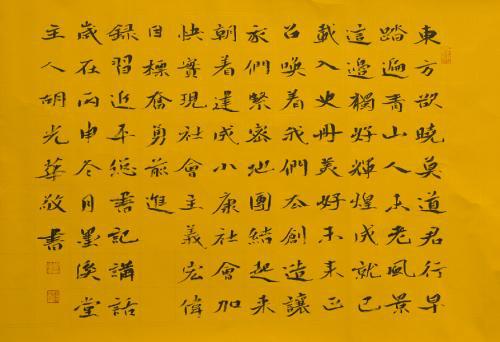 東方欲曉莫道君行早
踏遍青山人未老風景
這邊獨好輝煌成就已
載入史冊美好未来正
召喚着我們去創造讓
我們緊密地團結起来
朝着建成小康社會加
快實現社會主義宏偉
目標奮勇前進
錄習近平總書記講話
歲在丙申冬月墨溪堂
主人胡光華敬書